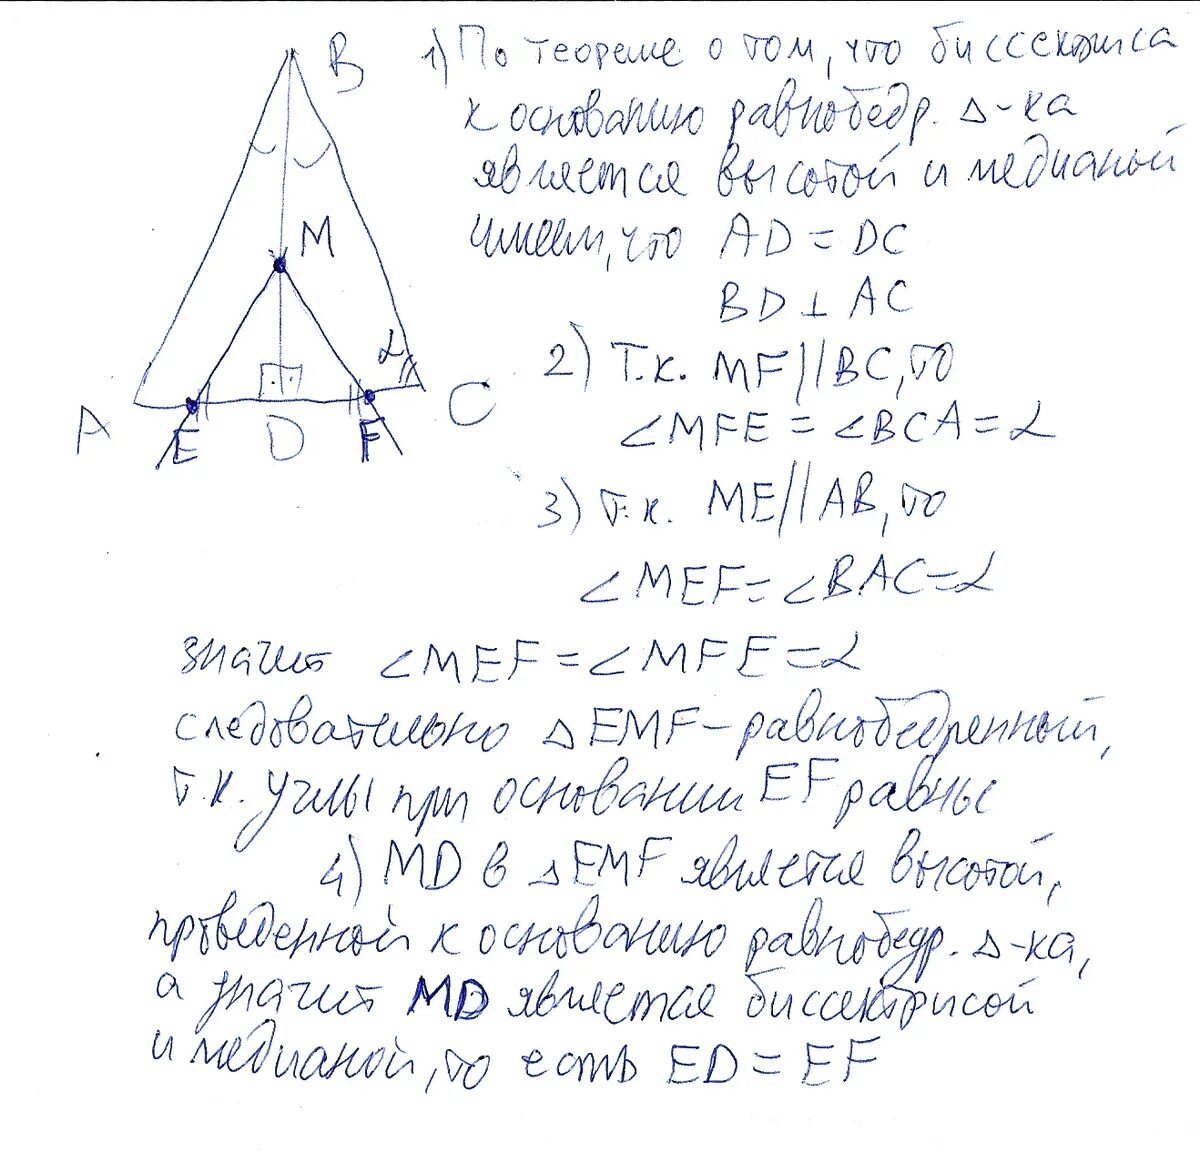 B
M
α
A E D F C
1) По теореме о том, что биссектриса
к основанию равнобедр. Δ-ка
является высотой и медианой
имеем, что AD = DC
BD ⊥ AC
2) Т.к. MF || BC, то
∠MFE = ∠BCA = α
3) т.к. ME || AB, то
∠MEF = ∠BAC = α
значит ∠MEF = ∠MFE = α
следовательно Δ EMF – равнобедренный,
т.к. углы при основании EF равны
4) MD в Δ EMF является высотой,
проведенной к основанию равнобедр. Δ-ка,
а значит MD является биссектрисой
и медианой, то есть ED = EF